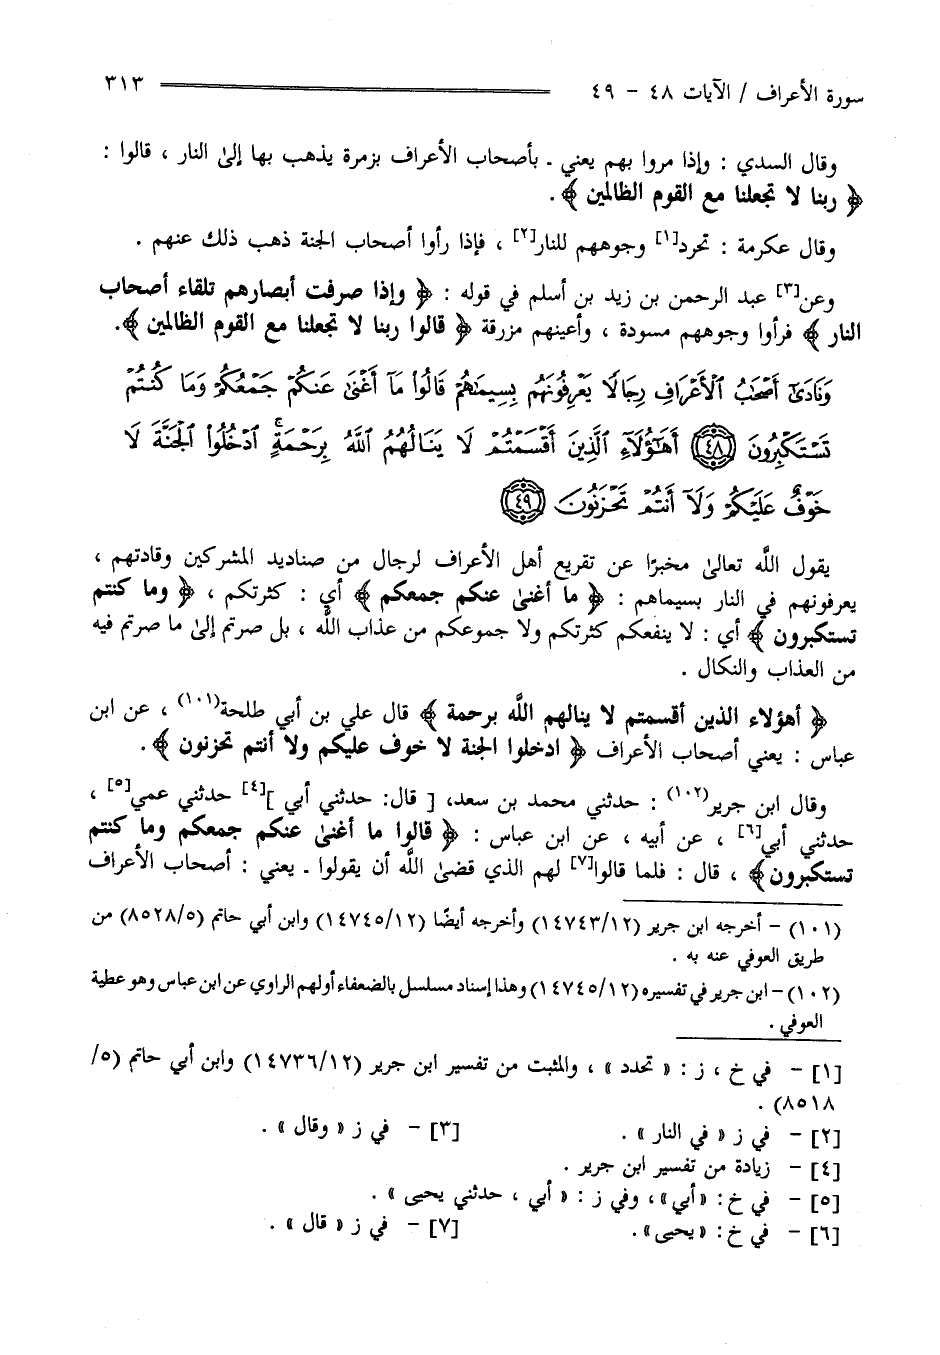 سورة الأعراف / الآيات ٤٨ - ٤٩ ٣١٣
وقال السدي : وإذا مروا بهم يعني ـ بأصحاب الأعراف بزمرة يذهب بها إلىٰ النار ، قالوا :
﴿ ربنا لا تجعلنا مع القوم الظالمين ﴾ .
وقال عكرمة : تحرد[١] وجوههم للنار[٢] ، فإذا رأوا أصحاب الجنة ذهب ذلك عنهم .
وعن[٣] عبد الرحمن بن زيد بن أسلم في قوله : ﴿ وإذا صرفت أبصارهم تلقاء أصحاب
النار ﴾ فرأوا وجوههم مسودة ، وأعينهم مزرقة ﴿ قالوا ربنا لا تجعلنا مع القوم الظالمين ﴾.
وَنَادَىٰٓ أَصْحَٰبُ ٱلْأَعْرَافِ رِجَالًا يَعْرِفُونَهُم بِسِيمَىٰهُمْ قَالُوا۟ مَآ أَغْنَىٰ عَنكُمْ جَمْعُكُمْ وَمَا كُنتُمْ
تَسْتَكْبِرُونَ ﴿٤٨﴾ أَهَٰٓؤُلَآءِ ٱلَّذِينَ أَقْسَمْتُمْ لَا يَنَالُهُمُ ٱللَّهُ بِرَحْمَةٍ ۚ ٱدْخُلُوا۟ ٱلْجَنَّةَ لَا
خَوْفٌ عَلَيْكُمْ وَلَآ أَنتُمْ تَحْزَنُونَ ﴿٤٩﴾
يقول اللَّه تعالىٰ مخبرًا عن تقريع أهل الأعراف لرجال من صناديد المشركين وقادتهم ،
يعرفونهم في النار بسيماهم : ﴿ ما أغنىٰ عنكم جمعكم ﴾ أي : كثرتكم ، ﴿ وما كنتم
تستكبرون ﴾ أي : لا ينفعكم كثرتكم ولا جموعكم من عذاب اللَّه ، بل صرتم إلىٰ ما صرتم فيه
من العذاب والنكال .
﴿ أهؤلاء الذين أقسمتم لا ينالهم اللَّه برحمة ﴾ قال علي بن أبي طلحة(١٠١) ، عن ابن
عباس : يعني أصحاب الأعراف ﴿ ادخلوا الجنة لا خوف عليكم ولا أنتم تحزنون ﴾ .
وقال ابن جرير(١٠٢) : حدثني محمد بن سعد، [ قال: حدثني أبي ][٤] حدثني عمي[٥] ،
حدثني أبي[٦] ، عن أبيه ، عن ابن عباس : ﴿ قالوا ما أغنىٰ عنكم جمعكم وما كنتم
تستكبرون ﴾ ، قال : فلما قالوا[٧] لهم الذي قضىٰ اللَّه أن يقولوا ـ يعني : أصحاب الأعراف
(١٠١) - أخرجه ابن جرير (١٤٧٤٣/١٢) وأخرجه أيضًا (١٤٧٤٥/١٢) وابن أبي حاتم (٨٥٢٨/٥) من
طريق العوفي عنه به .
(١٠٢) - ابن جرير في تفسيره (١٤٧٤٥/١٢) وهذا إسناد مسلسل بالضعفاء أولهم الراوي عن ابن عباس وهو عطية
العوفي .
[١] - في خ ، ز : « تحدد » ، والمثبت من تفسير ابن جرير (١٤٧٣٦/١٢) وابن أبي حاتم (٥/
٨٥١٨) .
[٢] - في ز « في النار » . [٣] - في ز « وقال » .
[٤] - زيادة من تفسير ابن جرير .
[٥] - في خ: «أبي»، وفي ز : « أبي ، حدثني يحيى » .
[٦] - في خ: «يحيى». [٧] - في ز « قال » .